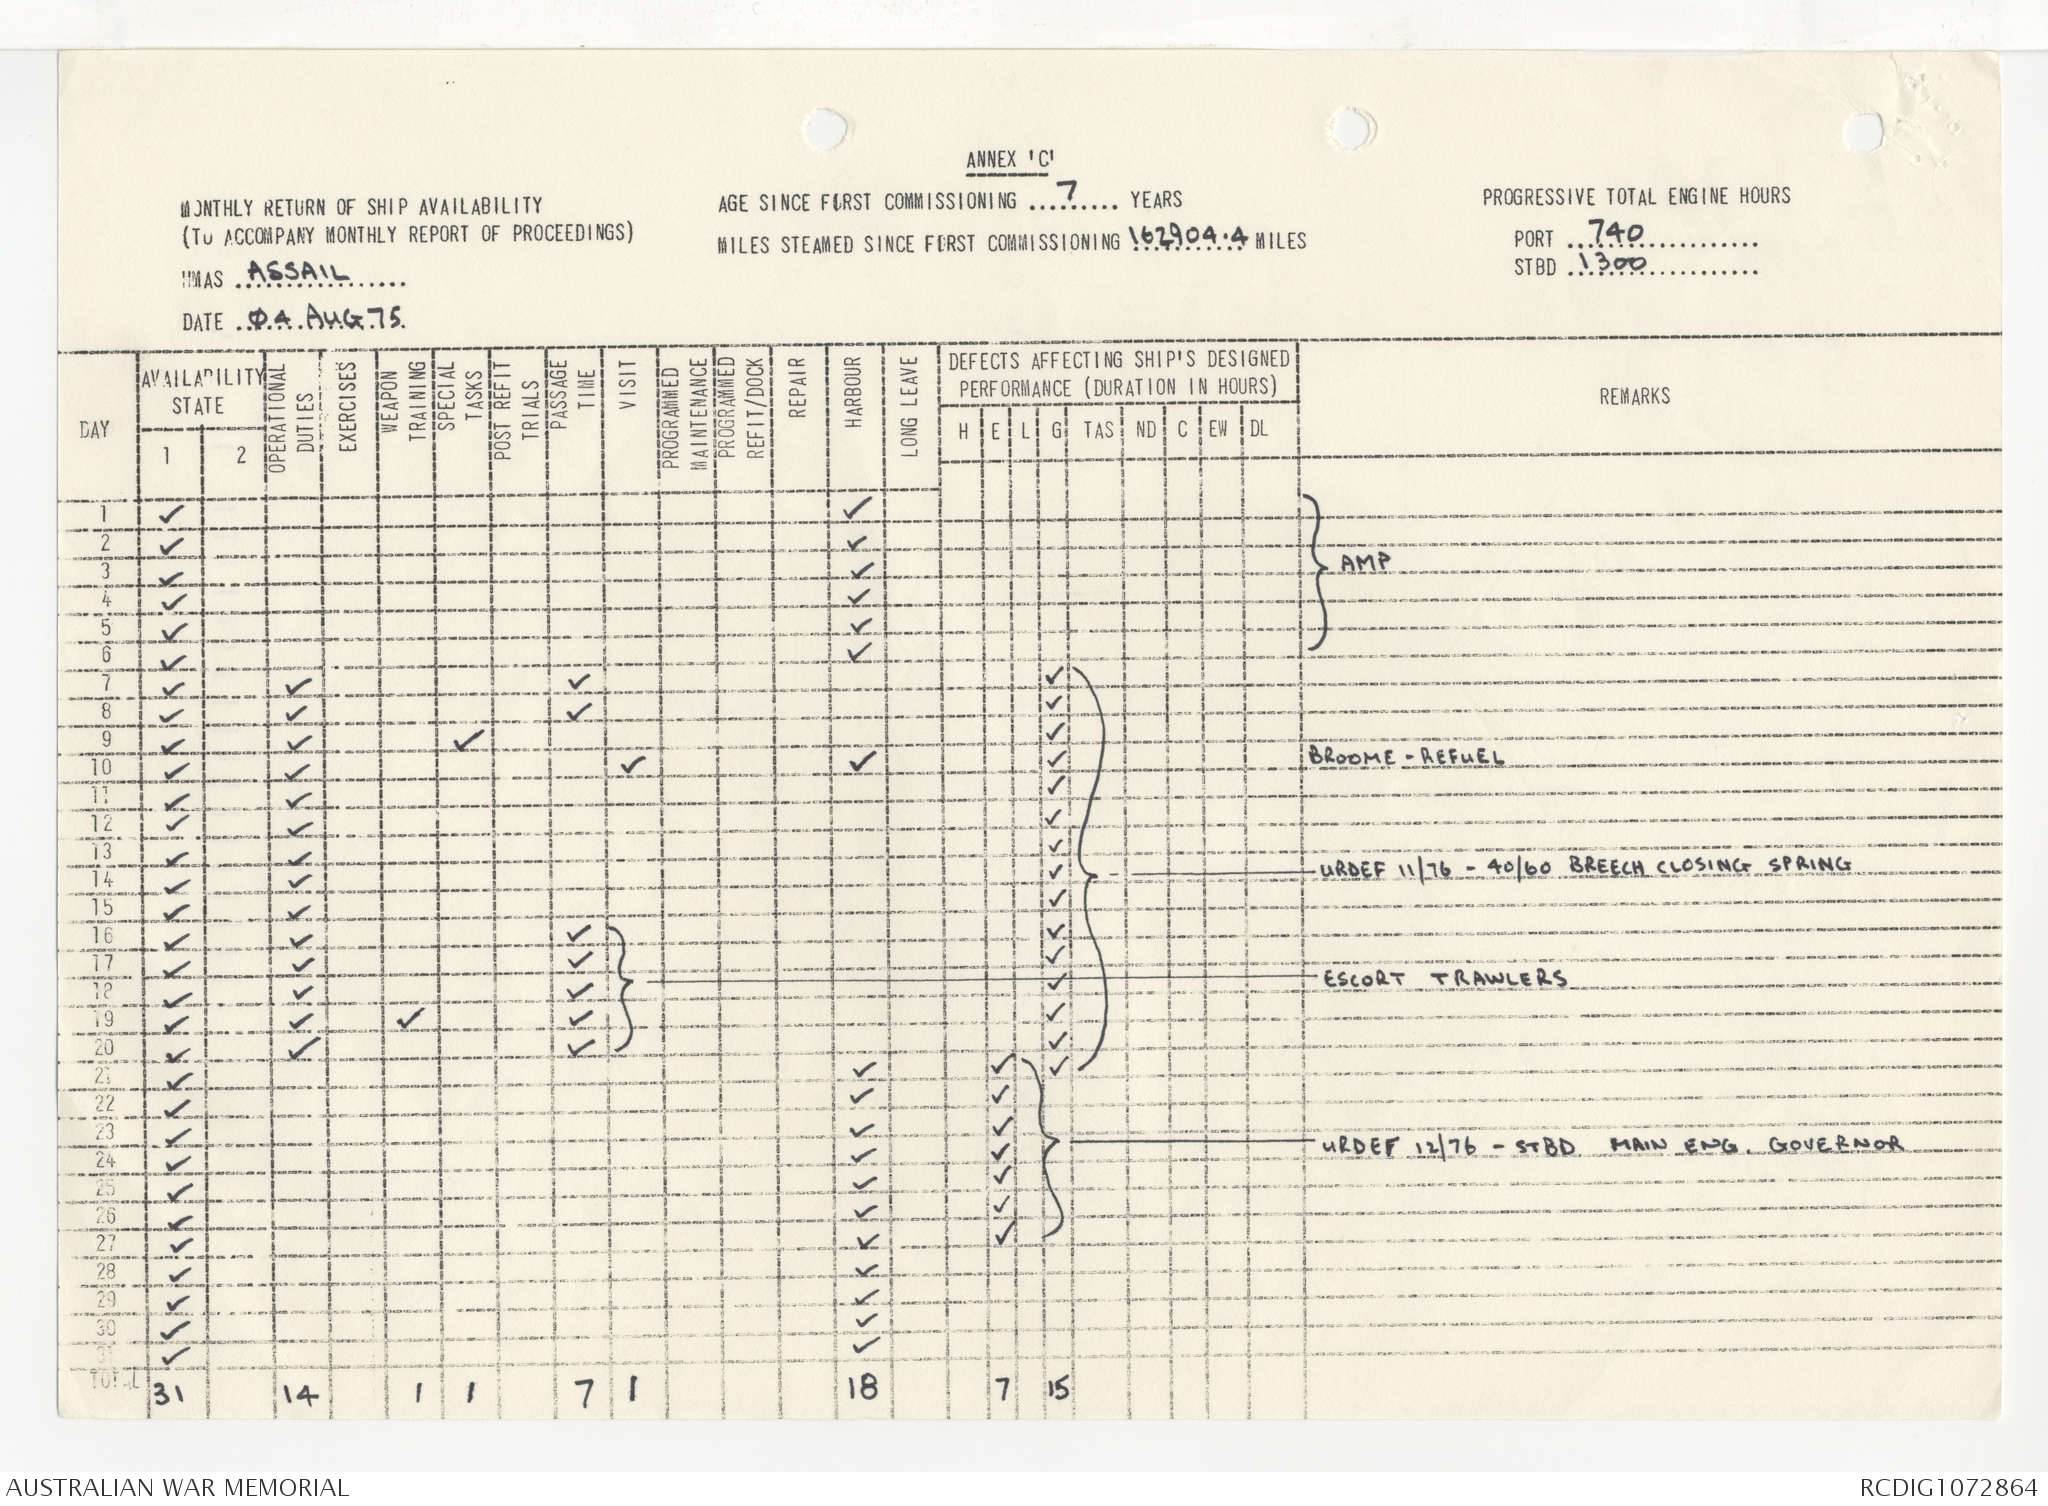 ANNEX 'C'
MONTHLY RETURN OF SHIP AVAILABILITY
(TO ACCOMPANY MONTHLY REPORT OF PROCEEDINGS)
HMAS ASSAIL
DATE 04 AUG 75
AGE SINCE FIRST COMMISSIONING ...7... YEARS
MILES STEAMED SINCE FIRST COMMISSIONING 162904.4 MILES
PROGRESSIVE TOTAL ENGINE HOURS
PORT 740
STBD 1300
DAY
AVAILABILITY STATE
1 2
OPERATIONAL DUTIES
EXERCISES
WEAPON TRAINING
SPECIAL TASKS
POST REFIT TRIALS
PASSAGE TIME
VISIT
PROGRAMMED MAINTENANCE
PROGRAMMED REFIT/DOCK
REPAIR
HARBOUR
LONG LEAVE
DEFECTS AFFECTING SHIP'S DESIGNED
PERFORMANCE (DURATION IN HOURS)
H E L G TAS ND C EW DL
REMARKS
1 ✓ ✓
2 ✓ ✓
3 ✓ ✓ AMP
4 ✓ ✓
5 ✓ ✓
6 ✓ ✓
7 ✓ ✓ ✓ ✓
8 ✓ ✓ ✓ ✓
9 ✓ ✓ ✓ ✓
10 ✓ ✓ ✓ ✓ ✓ BROOME - REFUEL
11 ✓ ✓ ✓
12 ✓ ✓ ✓
13 ✓ ✓ ✓
14 ✓ ✓ ✓ URDEF 11/76 - 40/60 BREECH CLOSING SPRING
15 ✓ ✓ ✓
16 ✓ ✓ ✓ ✓
17 ✓ ✓ ✓ ✓
18 ✓ ✓ ✓ ✓ ESCORT TRAWLERS
19 ✓ ✓ ✓ ✓ ✓
20 ✓ ✓ ✓ ✓
21 ✓ ✓ ✓ ✓
22 ✓ ✓ ✓
23 ✓ ✓ ✓
24 ✓ ✓ ✓ URDEF 12/76 - STBD MAIN ENG. GOVERNOR
25 ✓ ✓ ✓
26 ✓ ✓ ✓
27 ✓ ✓ ✓
28 ✓ ✓
29 ✓ ✓
30 ✓ ✓
31 ✓ ✓
TOTAL 31 14 1 1 7 1 18 7 15
AUSTRALIAN WAR MEMORIAL
RCDIG1072864